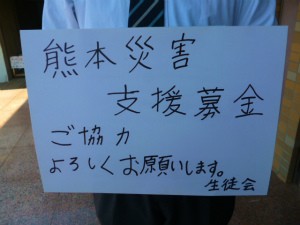 熊本災害
支援募金
ご協力
よろしくお願いします。
生徒会